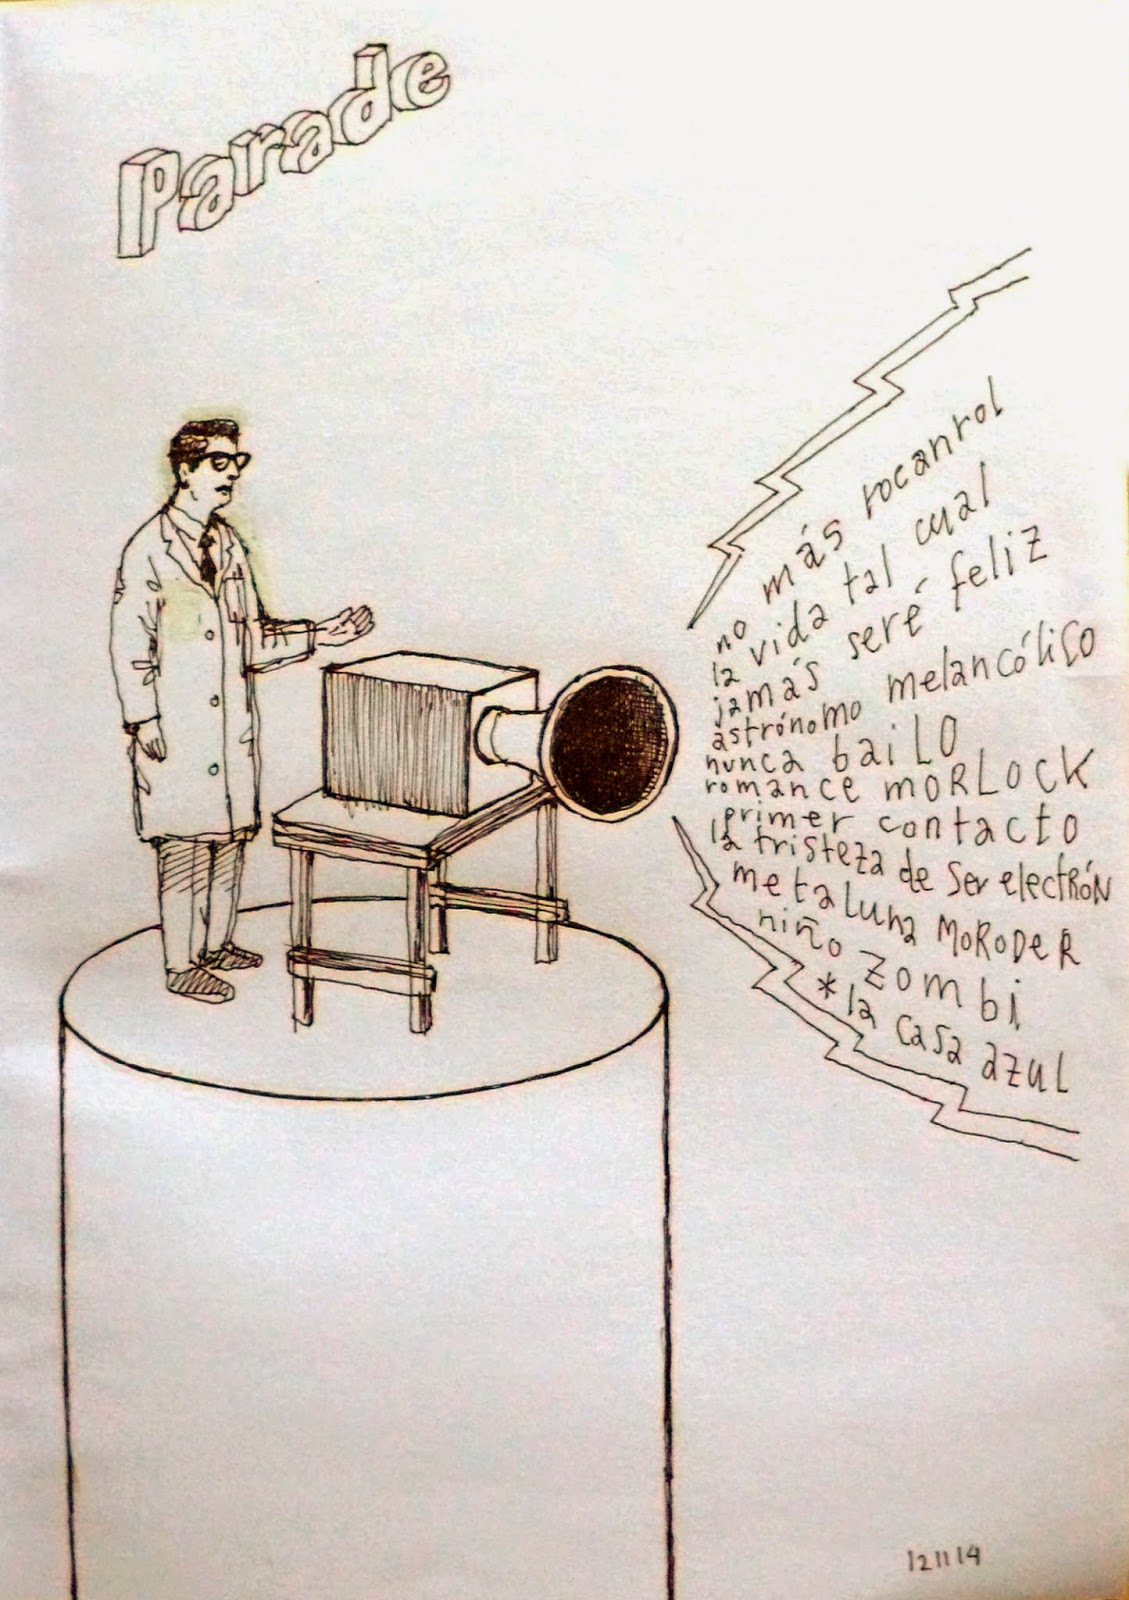 Parade
no más rocanrol
la vida tal cual
jamás seré feliz
astrónomo melancólico
nunca bailo
romance MORLOCK
primer contacto
la tristeza de ser electrón
metaluna MORODER
niño zombi
*la casa azul
121114